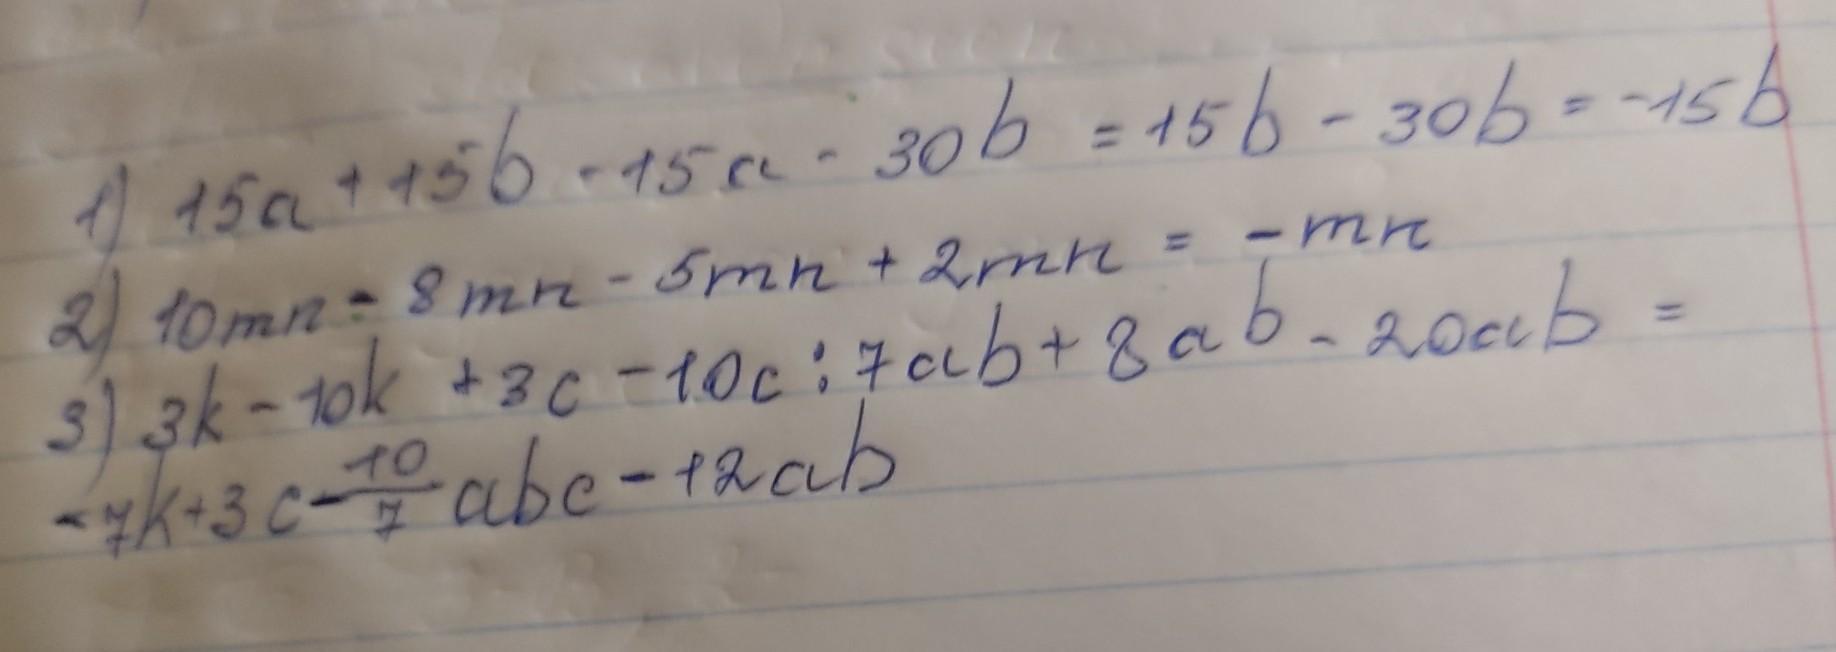 1) 15a + 15b - 15a - 30b = 15b - 30b = -15b
2) 10mn - 8mn - 5mn + 2mn = - mn
3) 3k - 10k + 3c - 10c : 7ab + 8ab - 20ab =
- 7k + 3c - 10/7 abc - 12ab